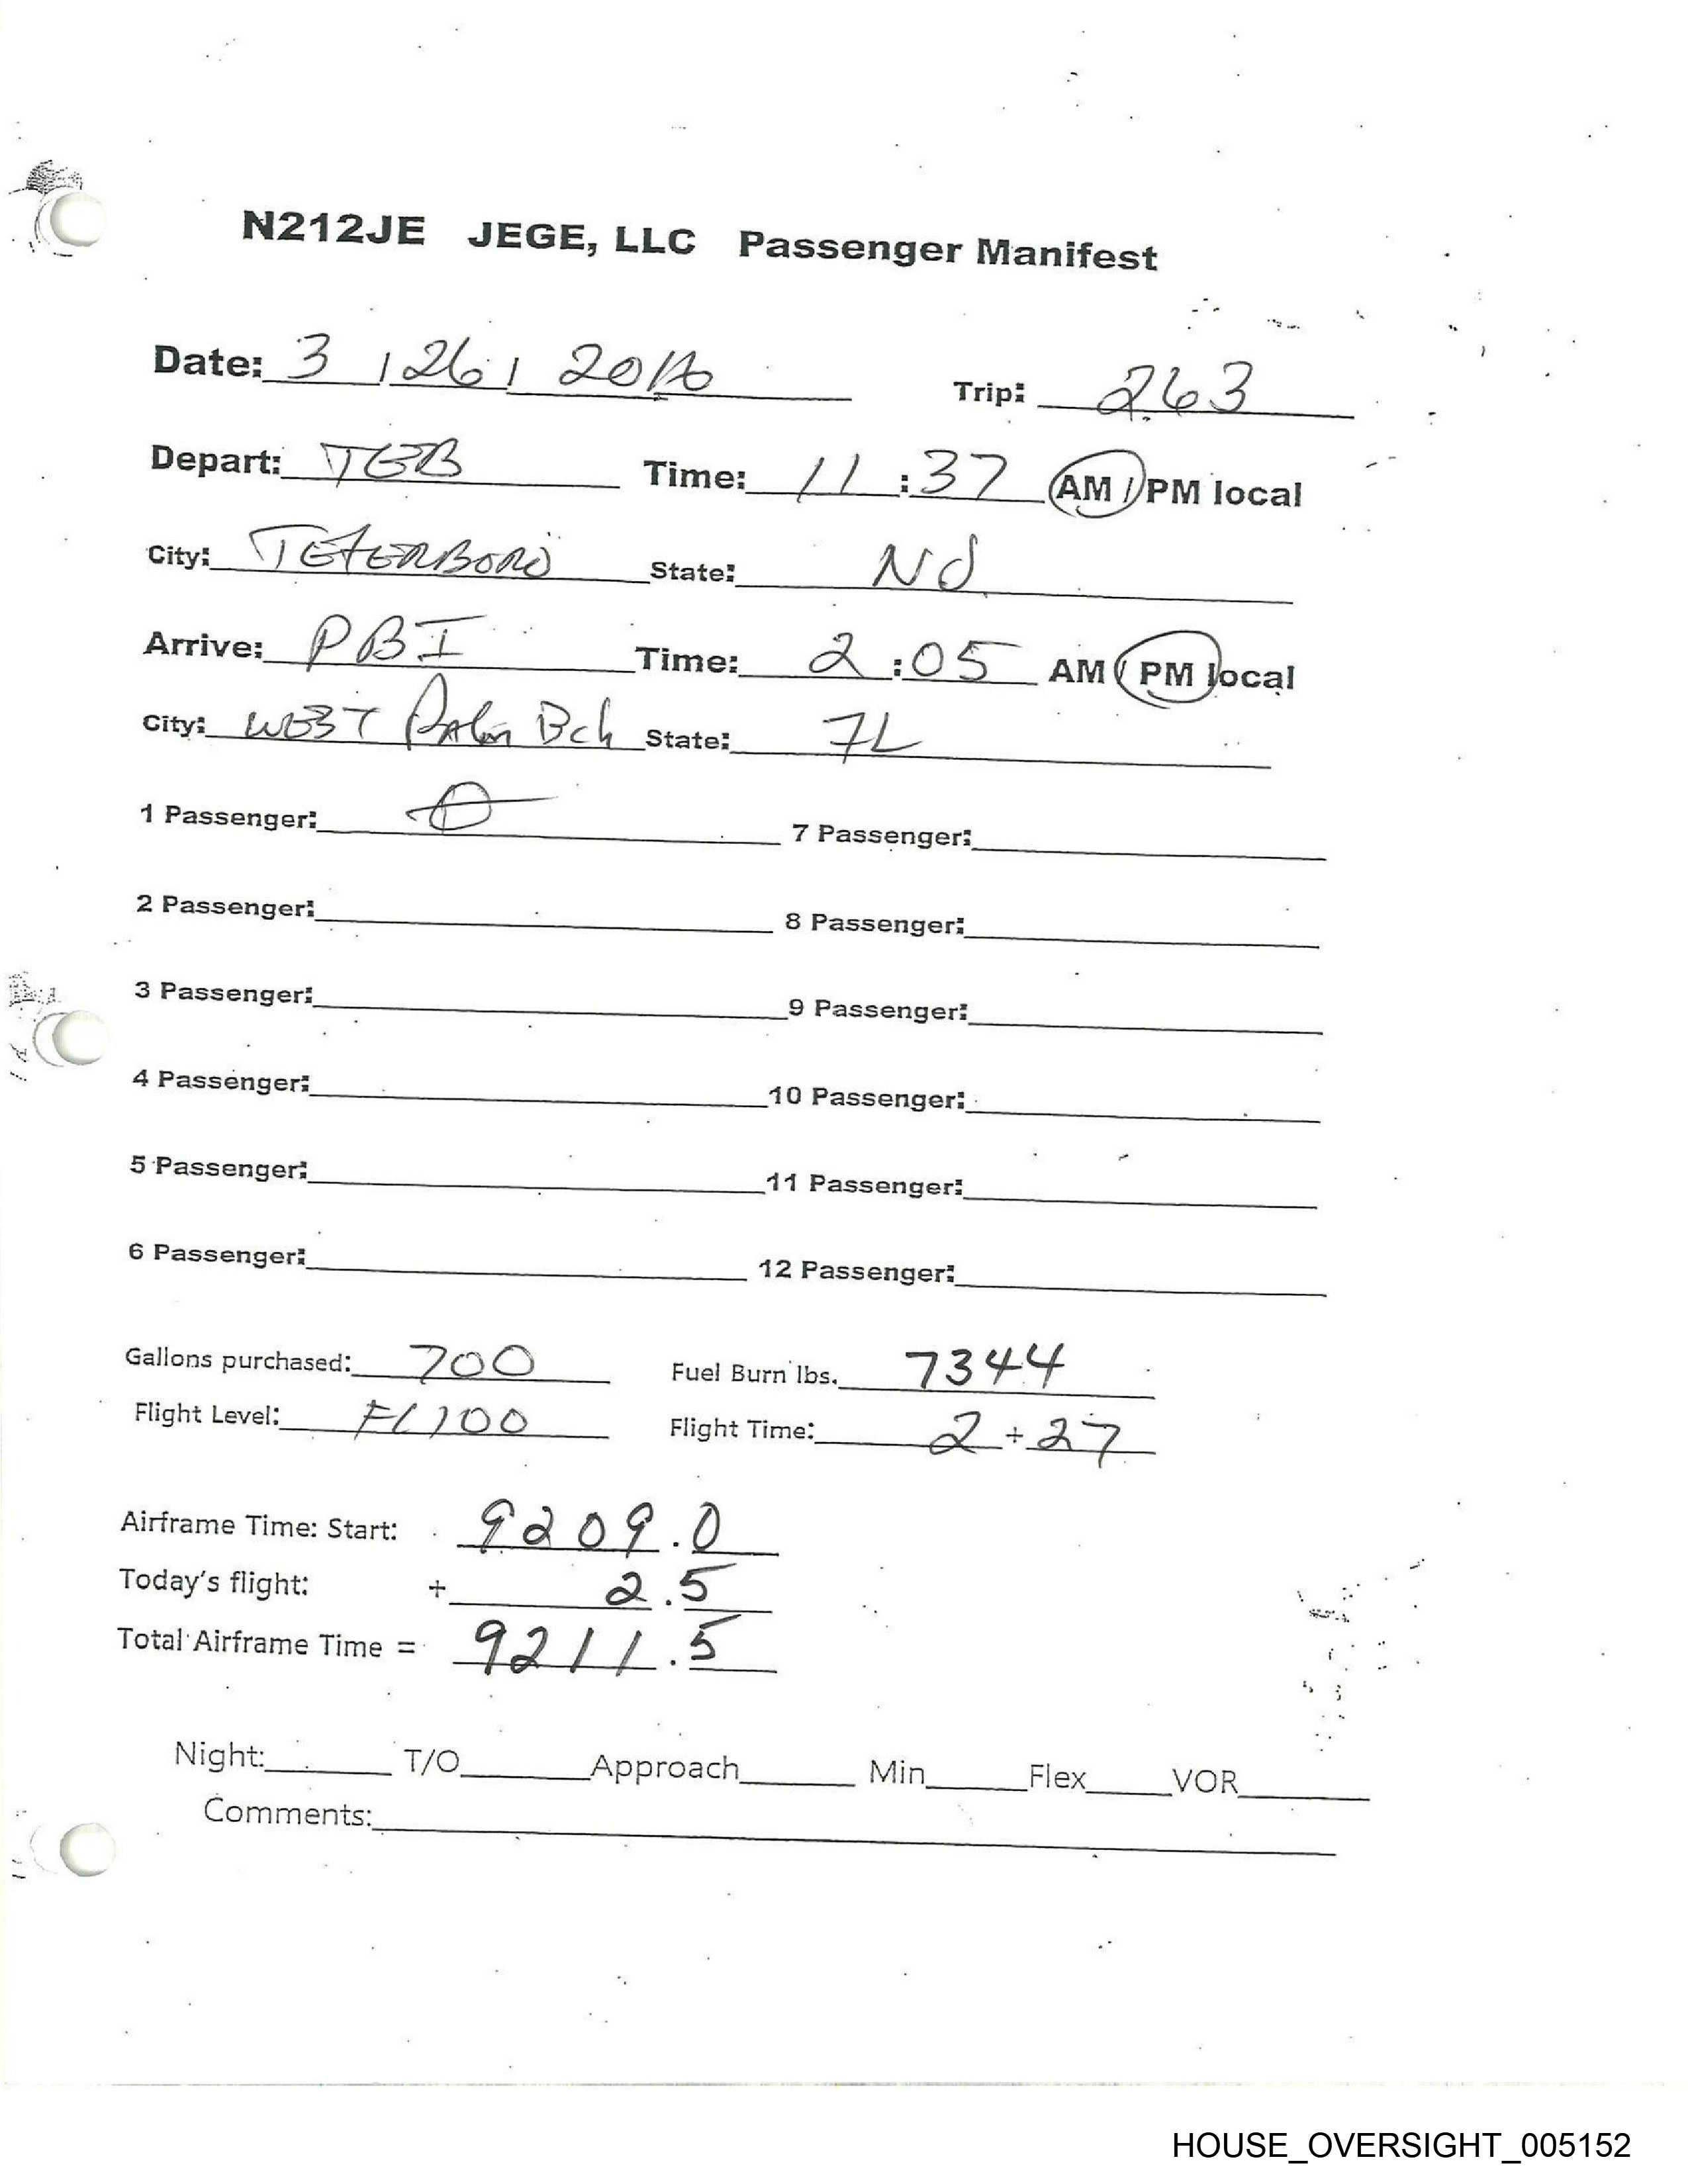 N212JE JEGE, LLC Passenger Manifest
Date: 3 / 26 / 2016 Trip: 263
Depart: TEB Time: 11:37 AM / PM local
City: TETERBORO State: NJ
Arrive: PBI Time: 2:05 AM / PM local
City: WEST Palm Bch State: FL
1 Passenger: 0 7 Passenger:
2 Passenger: 8 Passenger:
3 Passenger: 9 Passenger:
4 Passenger: 10 Passenger:
5 Passenger: 11 Passenger:
6 Passenger: 12 Passenger:
Gallons purchased: 700 Fuel Burn lbs. 7344
Flight Level: FL100 Flight Time: 2 + 27
Airframe Time: Start: 9209.0
Today's flight: + 2.5
Total Airframe Time = 9211.5
Night: T/O Approach Min Flex VOR
Comments:
HOUSE_OVERSIGHT_005152